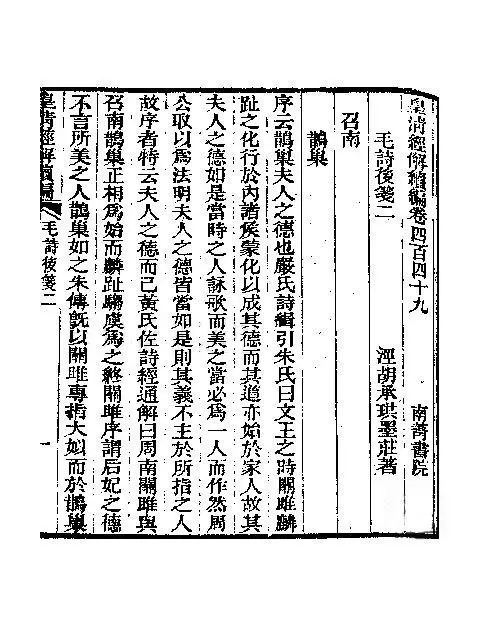 皇清經解續編卷四百四十九 南菁書院
毛詩後箋二 涇胡承珙墨莊著
召南
鵲巢
序云鵲巢夫人之德也嚴氏詩緝引朱氏曰文王之時關雎麟
趾之化行於內諸侯蒙化以成其德而其道亦始於家人故其
夫人之德如是當時之人詠歌而美之當必爲一人而作然周
公取以爲法明夫人之德皆當如是則其義不主於所指之人
故序者特云夫人之德而已黃氏佐詩經通解曰周南關雎與
召南鵲巢正相爲始而麟趾騶虞爲之終關雎序謂后妃之德
不言所美之人鵲巢如之朱傳旣以關雎專指大姒而於鵲巢
皇清經解續編 毛詩後箋二 一